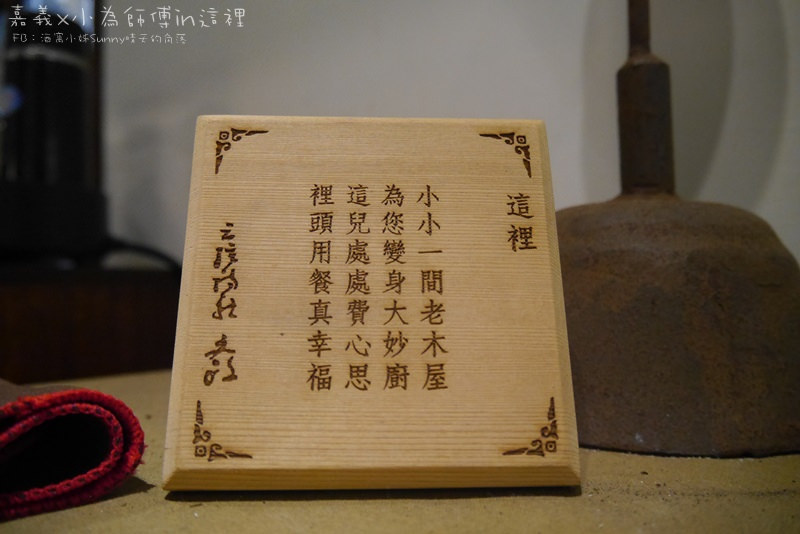 嘉義x小為師傅in這裡
FB：海寓小妹Sunny晴天的角落
這裡
小小一間老木屋
為您變身大妙廚
這兒處處費心思
裡頭用餐真幸福